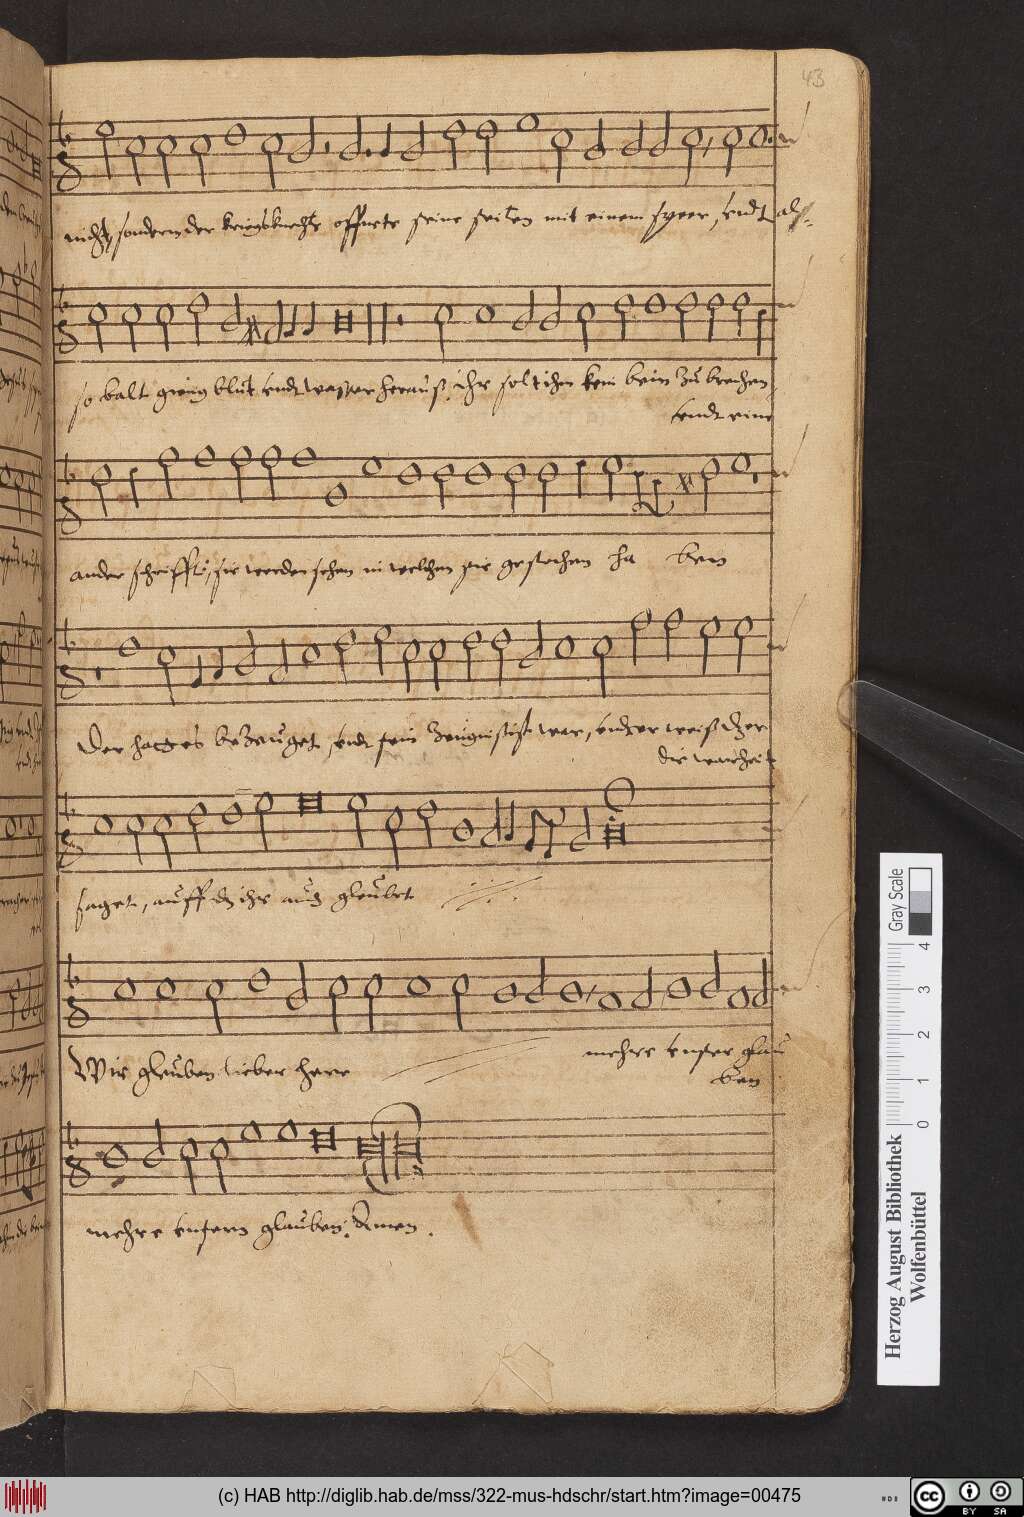 43
nicht, sondern der kriegsknecht offnete seine seiten mit einem speer, undt als
so balt gieng blut undt wasser herauß. ihr solt ihm kein bein zu brechen
undt eine
ander schrifft, sie werden sehen in welchen sie gestochen ha ben
Der hat es bezeuget, undt sein zeugnis ist war, undt er weiß dz er
die warheit
saget, auff dz ihr auch gleubet
Wir gleuben lieber herr mehre unser glau
ben
mehre unsern glauben. Amen.
Gray Scale
0 1 2 3 4
Herzog August Bibliothek
Wolfenbüttel
(c) HAB http://diglib.hab.de/mss/322-mus-hdschr/start.htm?image=00475
cc BY SA